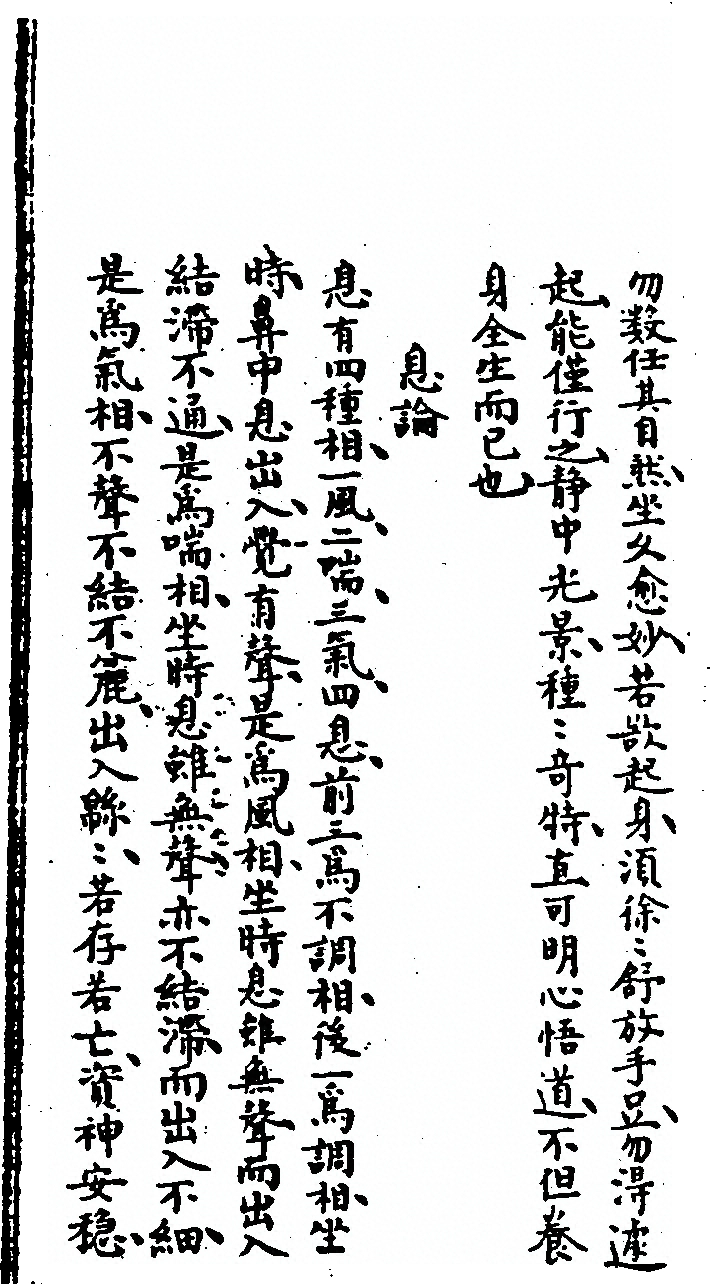 勿數任其自然、坐久愈妙、若欲起身、須徐〻舒放手足、勿淂遽
起、能僅行之、静中光景、種〻奇特、直可明心悟道、不但養
身全生而已也、
息論
息有四種相、一風、二喘、三氣、四息、前三爲不調相、後一爲調相、坐
時、鼻中息出入、覺有聲、是爲風相、坐時息雖無聲、而出入
結滯不通、是爲喘相、坐時息雖無聲、亦不結滯、而出入不細、
是爲氣相、不聲不結不麁、出入緜〻、若存若亡、資神安穏、